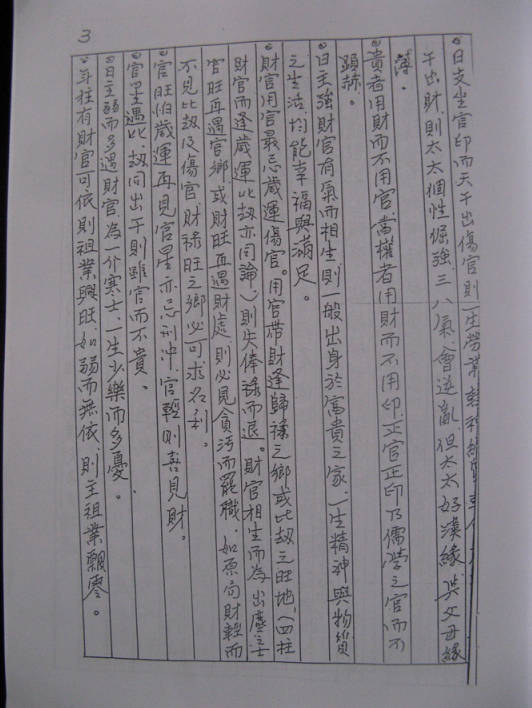 3
•日支坐官印而天干出傷官則一生勞
干出財,則太太個性倔強,三八氣,會逆亂,但太太好漢緣,與父母緣
薄。
•貴者用財而不用官,當權者用財而不用印,正官正印乃儒學之官而不
顯赫。
•日主強財官有氣而相生,則一般出身於富貴之家,一生精神與物質
之生活均能幸福與滿足。
•財官用官最忌歲運傷官。用官帶財逢歸祿之鄉或比劫之旺地,(四柱
財官而逢歲運比劫亦同論,)則失俸祿而退。財官相生而為出塵之士
官旺再遇官鄉,或財旺再遇財處,則必見貪污而罷職,如原旬財輕而
不見比劫及傷官,財祿旺之鄉必可求名利。
•官旺怕歲運再見官星,亦忌刑沖,官輕則喜見財。
•官星遇比劫同出干則雖官而不貴。
•日主弱而多遇財官,為一介寒士,一生少樂而多憂。
•年柱有財官可依則祖業興旺,如弱而無依,則主祖業飄零。